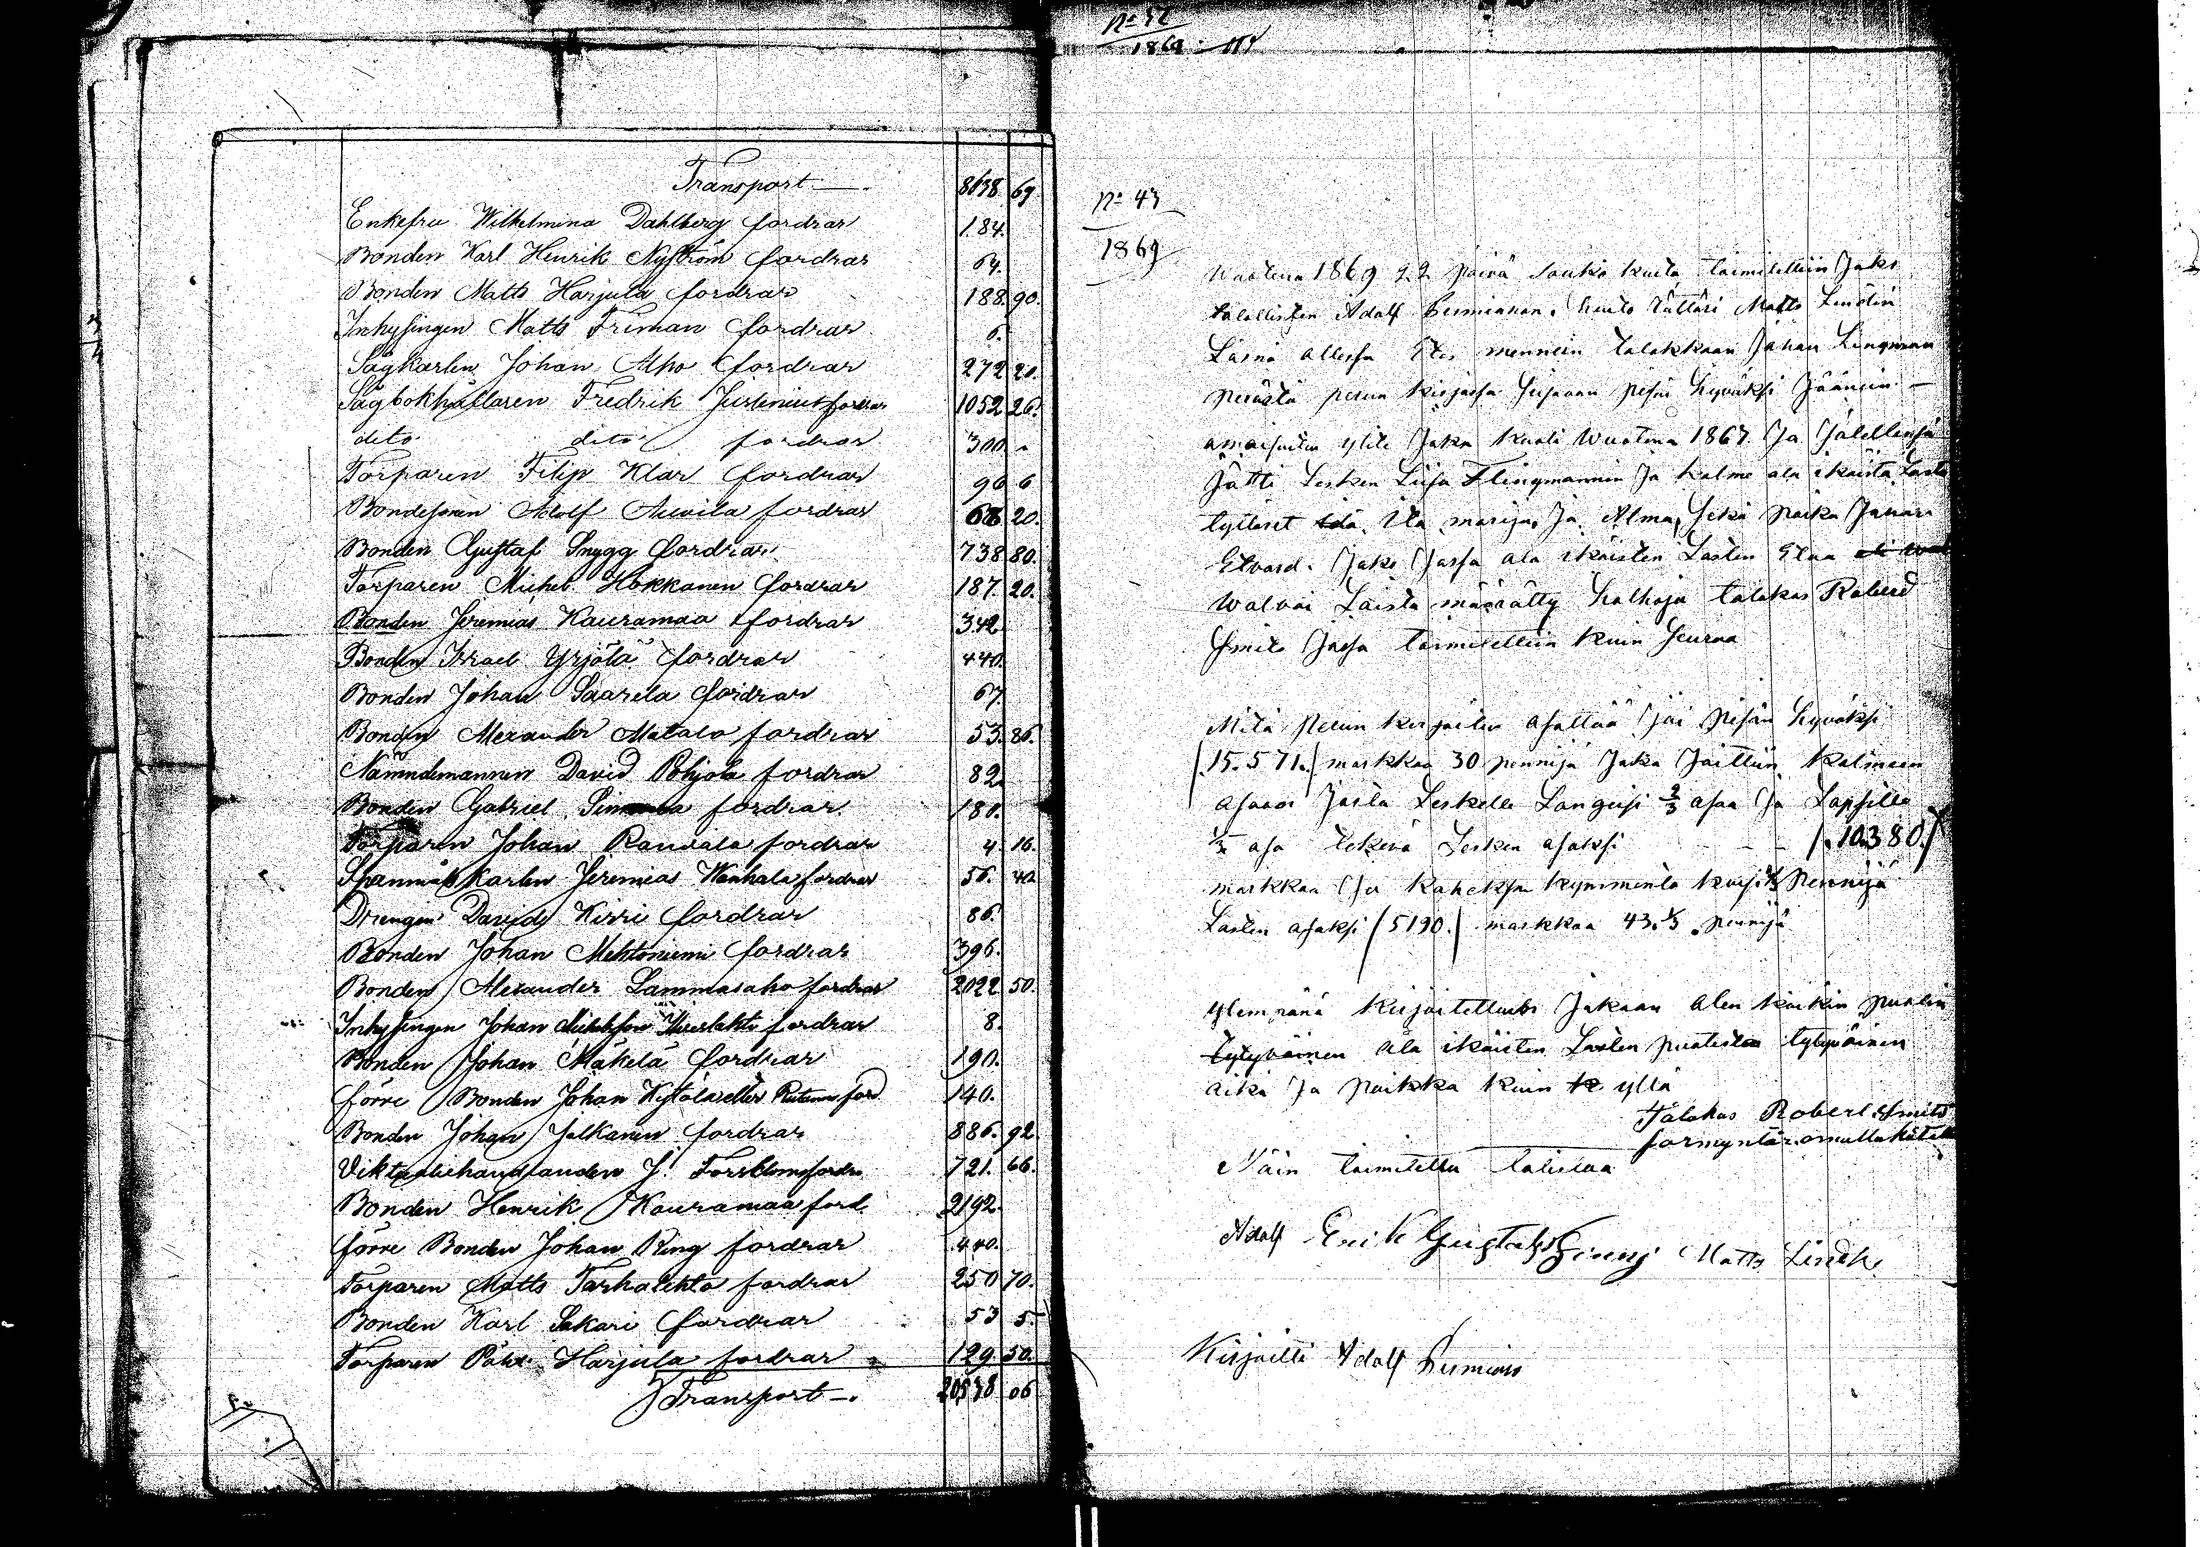 Transport 8638 69.
Enkefru Wilhelmina Dahlberg fordrar 184.
Bonden Karl Henrik Nyström fordrar 64.
Bonden Matts Harjula fordrar 188. 90.
Inhysingen Matts Friman fordrar 6.
Sågkarlen Johan Aho fordrar 272 20.
Sågbokhållaren Fredrik fordrar 1052 26.
dito dito fordrar 300
Torparen Filip Klar fordrar 96 6
Bondesonen Adolf fordrar 20.
Bonden Gustaf Snygg fordrar 738 80.
Torparen Michel Hokkanen fordrar 187. 20.
Bonden Jeremias Kauramaa fordrar 342
Bonden Israel Yrjölä fordrar 440.
Bonden Johan Saarela fordrar 67.
Bonden Alexander Matalo fordrar 53. 86.
Nämndemannen David Pohjola fordrar 82
Bonden Gabriel fordrar 180.
Torparen Johan Rauvala fordrar 4. 16.
Jeremias Wanhala fordrar 56. 40
Drengen David Kirri fordrar 86.
Bonden Johan Mehtoniemi fordrar 396.
Bonden Alexander Lammasaho fordrar 2022 50.
Inhysingen Johan fordrar 8.
Bonden Johan Mäkelä fordrar 190.
förre Bonden Johan eller ford 140.
Bonden Johan Jalkanen fordrar 886. 92
Viktualiehandlanden J. Forsblom fordr 721. 66.
Bonden Henrik Kauramaa ford 2192.
förre Bonden Johan Ring fordrar 440.
Torparen Matts Tarhalehto fordrar 250 70.
Bonden Karl Sakari fordrar 53 5
Torparen Harjula fordrar 129. 50.
Transport 06
1869
No 43
1869
Wuotena 1869 22 päivä kuuta toimitettiin Jako
talollisten Adolf Matts Lindlin
Läsnä ollessa mennein talokkaan Johan Lingman
perästä perun kirjassa pesän hyväksi Jäänsin
ylite Jaka kuoli wuotena 1867 Ja Jälellensä
Jätti Lesken Liisa Flingmannin Ja kolme ala ikäistä Lasta
tyttäret Ita marija, Ja Alma, sekä poika Juhan
Edvard. Jako Jassa ala ikäisten Lasten
walvoi Laista määrätty holhoja talokas Roberd
Smits Jassa toimitettiin kuin Seuraa
Mitä perun kirjoitus osottaa Jäi pesän hyväksi
/15.571./ markkaa 30 pennijä Joka Jaittiin kolmeen
osaan Josta Leskelle Langeisi 2/3 osaa Ja Lapsille
1/3 osa tekevä Lesken osaksi /.10380./
markkaa Ja kaheksan kymmentä pennijä
Lasten osaksi /5190./ markkaa 43.1/3. pennijä
ylempänä kirjoitettuun Jakoon olen kaikin puolin
tytyväinen ala ikäisten Lasten puolesta tytyväinen
aika Ja paikka kuin yllä
Talokas Robert Smits
formyntär omalla kädellä
Näin toimitettu totistaa
Adolf Erik Gustafs Matts Lindh.
Kirjoitti Adolf